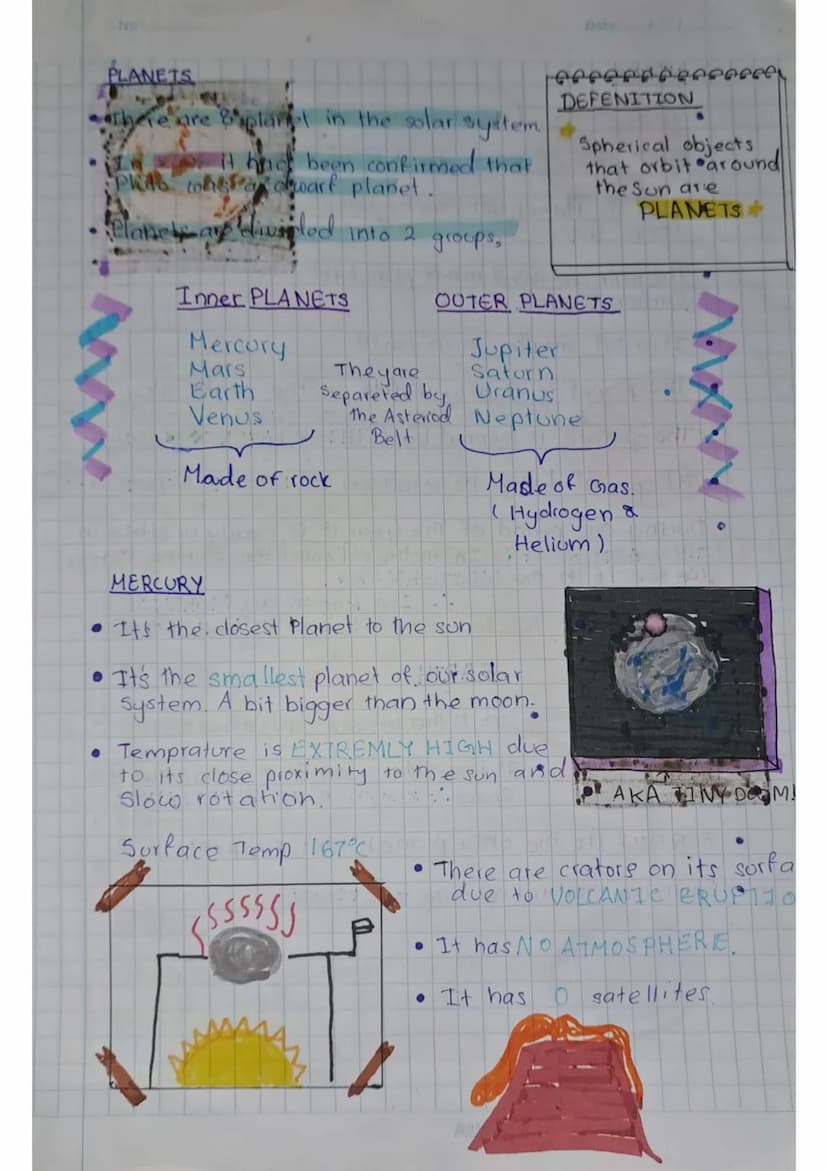 No
Date
PLANETS
• There are 8 planet in the solar system
• In it had been confirmed that
Pluto was a dwarf planet.
• Planets are divided into 2 groups,
DEFENITION
Spherical objects
that orbit around
the sun are
PLANETS
Inner PLANETS
Mercury
Mars
Earth
Venus
Made of rock
They are
Separeted by
the Asteriod
Belt
OUTER PLANETS
Jupiter
Saturn
Uranus
Neptune
Made of Gas.
(Hydrogen &
Helium)
MERCURY
• It's the closest Planet to the sun
• It's the smallest planet of our solar
System. A bit bigger than the moon.
• Temprature is EXTREMLY HIGH due
to its close proximity to the sun and
Slow rotation.
AKA TINY DOOM!
Surface Temp 167°C
• There are crators on its surfa
due to VOLCANIC ERUPTIO
• It has NO ATMOSPHERE.
• It has 0 satellites.